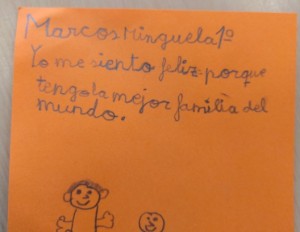 Marcos Minguela 1º
Yo me siento feliz porque
tengo la mejor familia del
mundo.